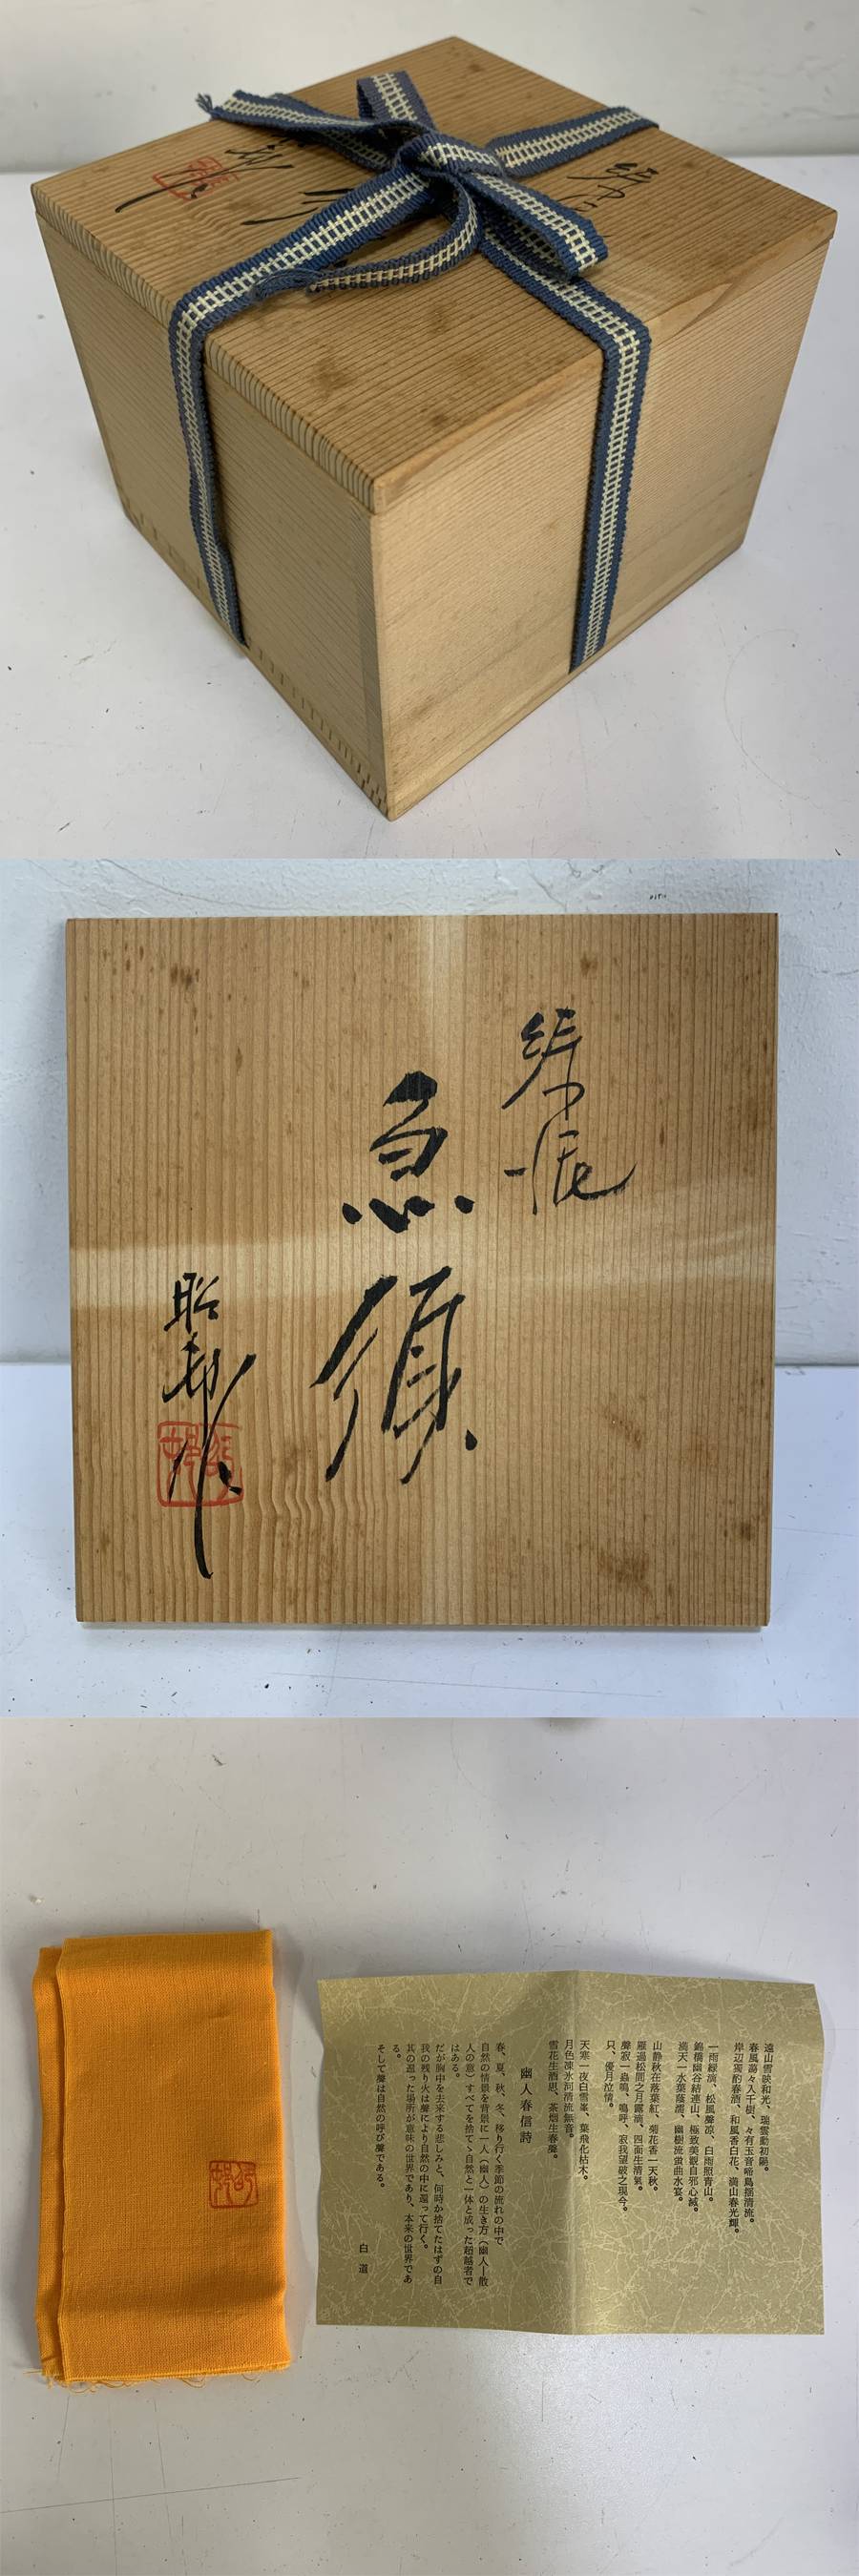 絳泥
急須
昭邦作
遠山雪映和光、瑞雲動初陽。
春風蕩々入千樹、々有玉音啼鳥揺清流。
岸辺獨酌春酒、和風香白花、満山春光輝。
一雨緑滴、松風聲凉、白雨照青山。
錦橋幽谷結連山、極致美觀自邪心滅。
満天一水葉蔭濡、幽樹流螢曲水宴。
山静秋在落葉紅、菊花香一天秋。
雁過松間之月露滴、四面生清氣。
聲寂一蟲鳴、嗚呼、寂我望破之現今。
只、優月泣情。
天寒一夜白雪峯、葉飛化枯木。
月色凍氷河清流無音。
雪花生酒思、茶烟生春聲。
幽人春信詩
春、夏、秋、冬、移り行く季節の流れの中で
自然の情景を背景に一人（幽人）の生き方（幽人―散
人の意）すべてを捨てゝ自然と一体と成った超越者で
はある。
だが胸中を去来する悲しみと、何時か捨てたはずの自
我の残り火は聲により自然の中に還って行く。
其の還った場所が意味の世界であり、本来の世界であ
る。
そして聲は自然の呼び聲である。
白道